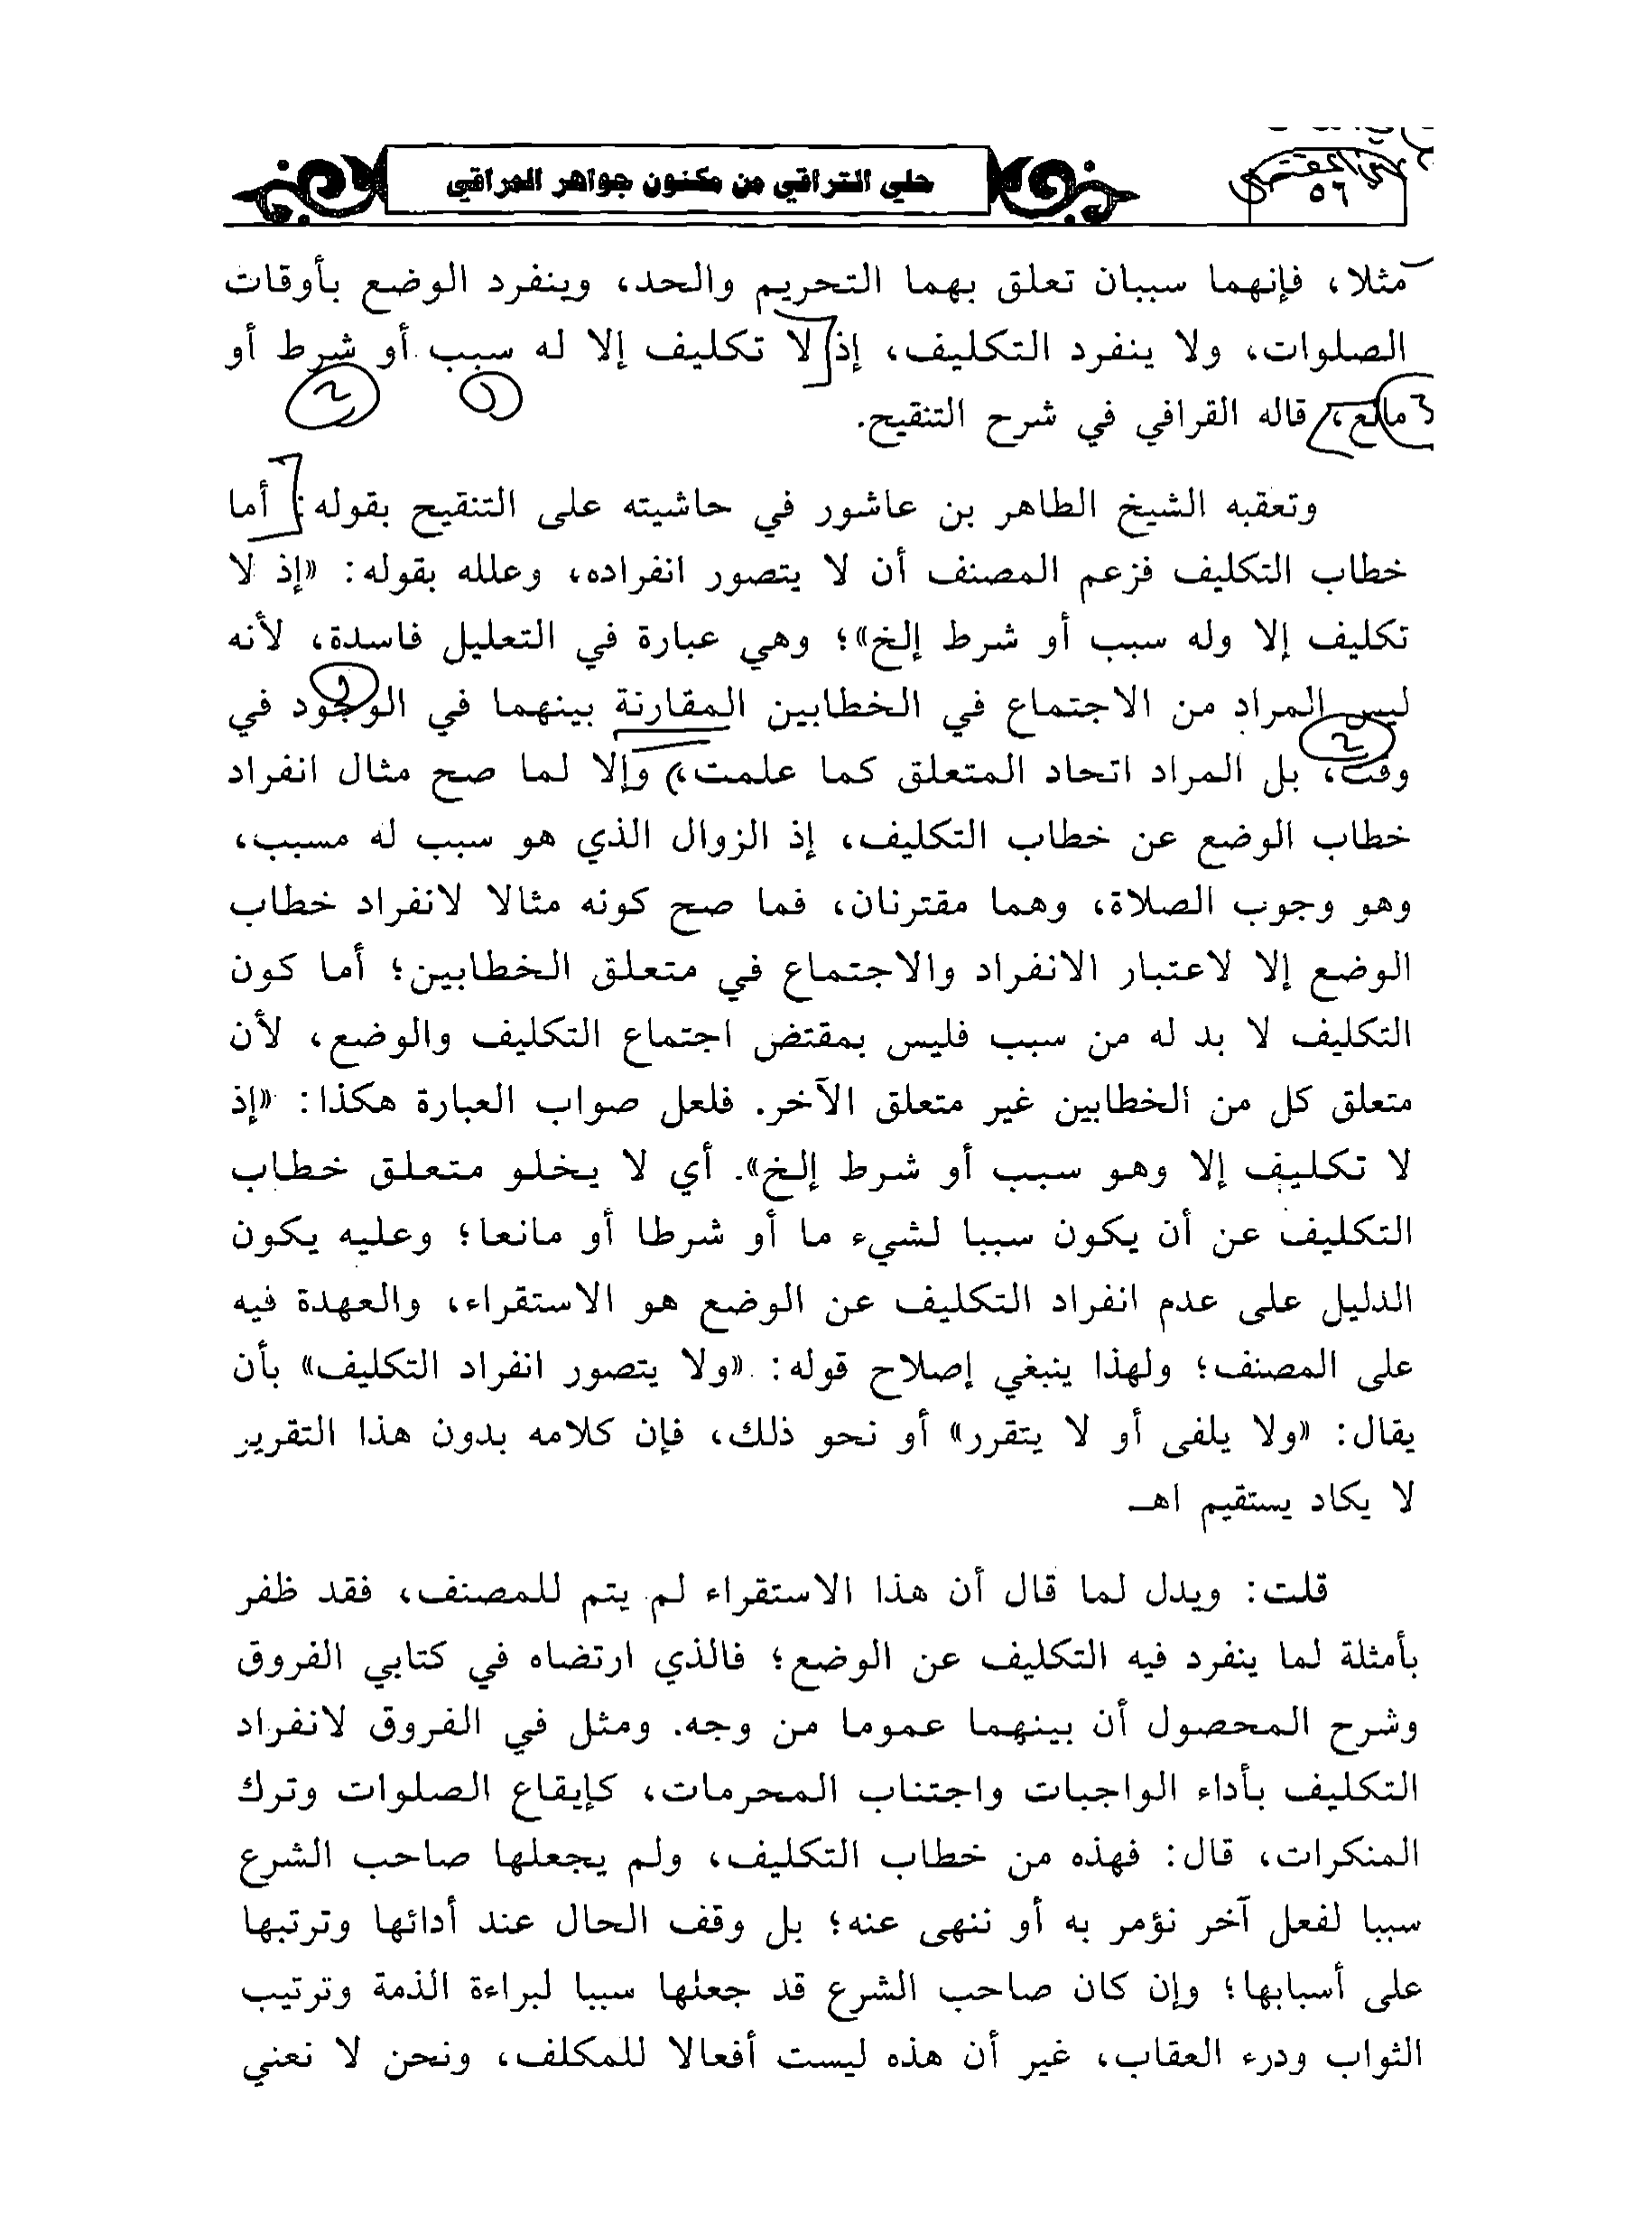 حلي التراقي من مكنون جواهر المراقي
٥٦
مثلا، فإنهما سببان تعلق بهما التحريم والحد، وينفرد الوضع بأوقات
الصلوات، ولا ينفرد التكليف، إذ لا تكليف إلا له سبب أو شرط أو
مانع، قاله القرافي في شرح التنقيح.
وتعقبه الشيخ الطاهر بن عاشور في حاشيته على التنقيح بقوله: أما
خطاب التكليف فزعم المصنف أن لا يتصور انفراده، وعلله بقوله: «إذ لا
تكليف إلا وله سبب أو شرط إلخ»؛ وهي عبارة في التعليل فاسدة، لأنه
ليس المراد من الاجتماع في الخطابين المقارنة بينهما في الوجود في
وقت، بل المراد اتحاد المتعلق كما علمت، وإلا لما صح مثال انفراد
خطاب الوضع عن خطاب التكليف، إذ الزوال الذي هو سبب له مسبب،
وهو وجوب الصلاة، وهما مقترنان، فما صح كونه مثالا لانفراد خطاب
الوضع إلا لاعتبار الانفراد والاجتماع في متعلق الخطابين؛ أما كون
التكليف لا بد له من سبب فليس بمقتض اجتماع التكليف والوضع، لأن
متعلق كل من الخطابين غير متعلق الآخر. فلعل صواب العبارة هكذا: «إذ
لا تكليف إلا وهو سبب أو شرط إلخ». أي لا يخلو متعلق خطاب
التكليف عن أن يكون سببا لشيء ما أو شرطا أو مانعا؛ وعليه يكون
الدليل على عدم انفراد التكليف عن الوضع هو الاستقراء، والعهدة فيه
على المصنف؛ ولهذا ينبغي إصلاح قوله: «ولا يتصور انفراد التكليف» بأن
يقال: «ولا يلفى أو لا يتقرر» أو نحو ذلك، فإن كلامه بدون هذا التقرير
لا يكاد يستقيم اهـ
قلت: ويدل لما قال أن هذا الاستقراء لم يتم للمصنف، فقد ظفر
بأمثلة لما ينفرد فيه التكليف عن الوضع؛ فالذي ارتضاه في كتابي الفروق
وشرح المحصول أن بينهما عموما من وجه. ومثل في الفروق لانفراد
التكليف بأداء الواجبات واجتناب المحرمات، كإيقاع الصلوات وترك
المنكرات، قال: فهذه من خطاب التكليف، ولم يجعلها صاحب الشرع
سببا لفعل آخر نؤمر به أو ننهى عنه؛ بل وقف الحال عند أدائها وترتبها
على أسبابها؛ وإن كان صاحب الشرع قد جعلها سببا لبراءة الذمة وترتيب
الثواب ودرء العقاب، غير أن هذه ليست أفعالا للمكلف، ونحن لا نعني